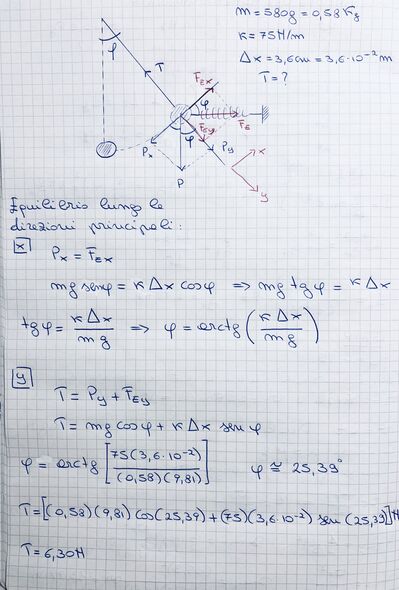 m = 580g = 0,58 Kg
K = 75N/m
Δx = 3,6cm = 3,6·10⁻² m
T = ?
φ
T
F_Ex
φ
F_E
φ
F_Ey
P_x
P_y
P
x
y
Equilibrio lungo le
direzioni principali:
x
P_x = F_Ex
mg senφ = K Δx cosφ ⇒ mg tgφ = K Δx
tgφ = KΔx/mg ⇒ φ = arctg(KΔx/mg)
y
T = P_y + F_Ey
T = mg cosφ + K Δx sen φ
φ = arctg [75(3,6·10⁻²)/(0,58)(9,81)] φ ≅ 25,39°
T = [(0,58)(9,81) cos(25,39) + (75)(3,6·10⁻²) sen (25,39)]N
T = 6,30N